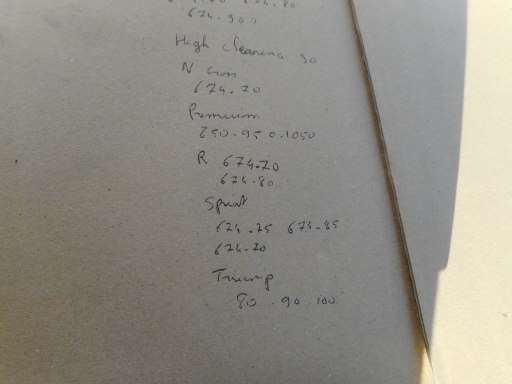 674.90
High clearence 90
N Cross
674.70
Premium
850.950.1050
R 674.70
674.80
Sprint
674.75 674.85
674.70
Triump
80.90.100